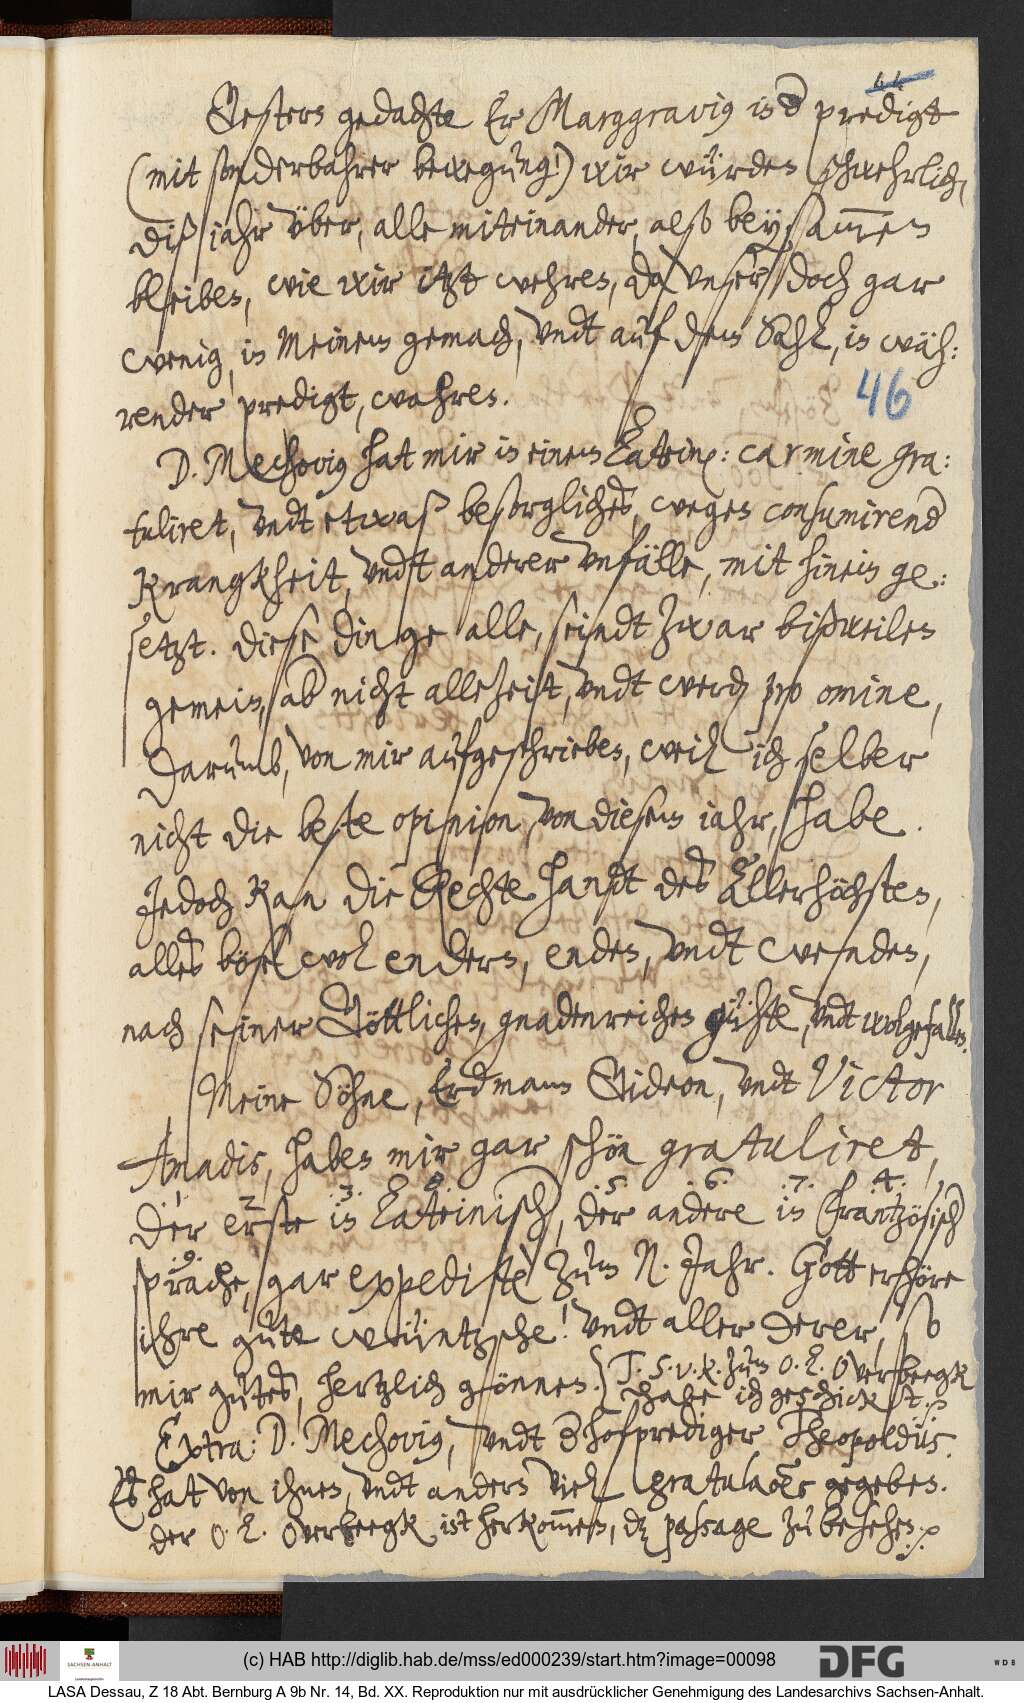 44
Gestern gedachte Er Marggravius in d predigt
(mit sonderbahrer bewegung!) wir würden schwehrlich,
diß jahr über, alle miteinander, also beysam̅en
bleiben, wie wir itzt wehren, da unser doch gar
wenig, in Meinem gemach, undt auf dem Sahl, in wäh:
46
render predigt, wahren.
D. Mechovius hat mir in einem Lateinischen: carmine gra:
tuliret, undt etwaß besorgliches, wegen consumirend
Krangkheit, undt anderer unfälle, mit hinein ge:
setzt. Diese dinge alle, seindt zwar bißweilen
gemein, ab nicht allezeit, undt werden pro omine,
darumb, von mir aufgeschrieben, weil ich selber
nicht die beste opinion, von diesem jahr, habe.
Jedoch kan die Rechte handt des Allerhöchsten,
alles böse wol endern, enden, undt wenden,
nach seiner Göttlichen, gnadenreichen gühte, undt wolgefallen.
Meine Söhne, Erdmann Gideon, undt Victor
Amadis, haben mir gar schön gratuliret,
1. 2. .3. .8. .5. .6. .7. .4.
der erste in Lateinisch, der andere in Frantzösisch
.9.
sprache, gar expedite zum N. Jahr. Gott erhöre
ihre gute wüntzsche! undt aller derer, so
mir gutes, hertzlich gönnen.} T. S. v. K. zum O. L. Overbeegk
habe ich geschickt.
Extra: D. Mechovius, undt d hofprediger Theopoldus.
Es hat von ihnen, undt andern viel gratulationes gegeben.
der O. L. Overbeegk ist herkom̅en, die passage zu besehen.
(c) HAB http://diglib.hab.de/mss/ed000239/start.htm?image=00098
SACHSEN-ANHALT
DFG
WDB
LASA Dessau, Z 18 Abt. Bernburg A 9b Nr. 14, Bd. XX. Reproduktion nur mit ausdrücklicher Genehmigung des Landesarchivs Sachsen-Anhalt.